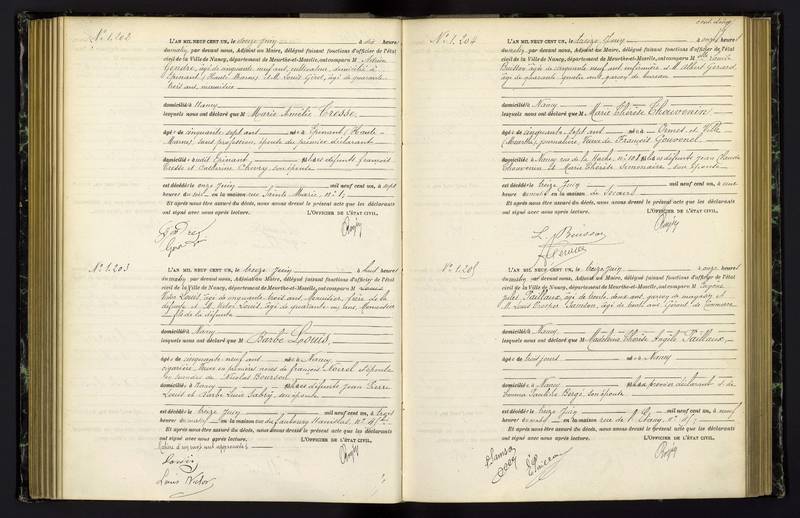 N° 1.202
L'AN MIL NEUF CENT UN, le douze Juin à dix heures
du matin, par devant nous, Adjoint au Maire, délégué faisant fonctions d'officier de l'état
civil de la Ville de Nancy, département de Meurthe-et-Moselle, ont comparu M
âgé de cinquante neuf ans, cultivateur, domicilié à
Epinant (Haute Marne) et M. Louis Girot, âgé de quarante
trois ans, menuisier
domiciliés à Nancy
lesquels nous ont déclaré que M Marie Amélie Cresse
âgée de cinquante sept ans née à Epinant (Haute-
Marne), sans profession, épouse du premier déclarant
domiciliée à audit Epinant, fille de défunts François
Cresse et Catherine son épouse
est décédée le onze Juin mil neuf cent un, à sept
heures du soir en la maison rue Sainte Marie, n° 1
Et après nous être assuré du décès, nous avons dressé le présent acte que les déclarants
ont signé avec nous après lecture. L'OFFICIER DE L'ÉTAT CIVIL,
N° 1.203
L'AN MIL NEUF CENT UN, le treize Juin à huit heures
du matin, par devant nous, Adjoint au Maire, délégué faisant fonctions d'officier de l'état
civil de la Ville de Nancy, département de Meurthe-et-Moselle, ont comparu M Louis
Louis, âgé de cinquante trois ans, Menuisier, frère de la
défunte et M. Victor Louis, âgé de quarante un ans, Menuisier
de la défunte
domiciliés à Nancy
lesquels nous ont déclaré que M Barbe Louis,
âgée de cinquante neuf ans née à Nancy
cigarière, Veuve en premières noces de François Noirel et épouse
en secondes de Nicolas Bourson
domiciliée à Nancy fille de défunts Jean Pierre
Louis et Barbe son épouse
est décédée le treize Juin mil neuf cent un, à trois
heures du matin en la maison rue du faubourg Stanislas
Et après nous être assuré du décès, nous avons dressé le présent acte que les déclarants
ont signé avec nous après lecture. L'OFFICIER DE L'ÉTAT CIVIL,
Louis
Louis Victor
N° 1.204
L'AN MIL NEUF CENT UN, le treize Juin à onze heures
du matin, par devant nous, Adjoint au Maire, délégué faisant fonctions d'officier de l'état
civil de la Ville de Nancy, département de Meurthe-et-Moselle, ont comparu M
Buisson âgée de cinquante neuf ans, infirmière et M. Albert Gérard
âgé de quarante quatre ans, garçon de bureau
domiciliés à Nancy
lesquels nous ont déclaré que M Marie Thérèse Chouvenin,
âgée de cinquante sept ans née à Ormes et Ville
(Meurthe), journalière, Veuve de François Gouvenel
domiciliée à Nancy rue de la Hache, n° 108 fille de défunts Jean Claude
Chouvenin et Marie Thérèse son épouse
est décédée le treize Juin mil neuf cent un, à une
heure du matin en la maison de Secours
Et après nous être assuré du décès, nous avons dressé le présent acte que les déclarants
ont signé avec nous après lecture. L'OFFICIER DE L'ÉTAT CIVIL,
L. Buisson
N° 1.205
L'AN MIL NEUF CENT UN, le treize Juin à onze heures
du matin, par devant nous, Adjoint au Maire, délégué faisant fonctions d'officier de l'état
civil de la Ville de Nancy, département de Meurthe-et-Moselle, ont comparu M Eugène
Jules Paillaux, âgé de trente deux ans, garçon de magasin et
M. Louis Prosper âgé de trente ans, Gérant de Commerce
domiciliés à Nancy
lesquels nous ont déclaré que M Madeleine Thérèse Angèle Paillaux
âgée de trois jours née à Nancy
domiciliée à Nancy fille du premier déclarant et de
Emma Pauline son épouse
est décédée le treize Juin mil neuf cent un, à neuf
heures du matin en la maison rue de l'Etang, n°
Et après nous être assuré du décès, nous avons dressé le présent acte que les déclarants
ont signé avec nous après lecture. L'OFFICIER DE L'ÉTAT CIVIL,